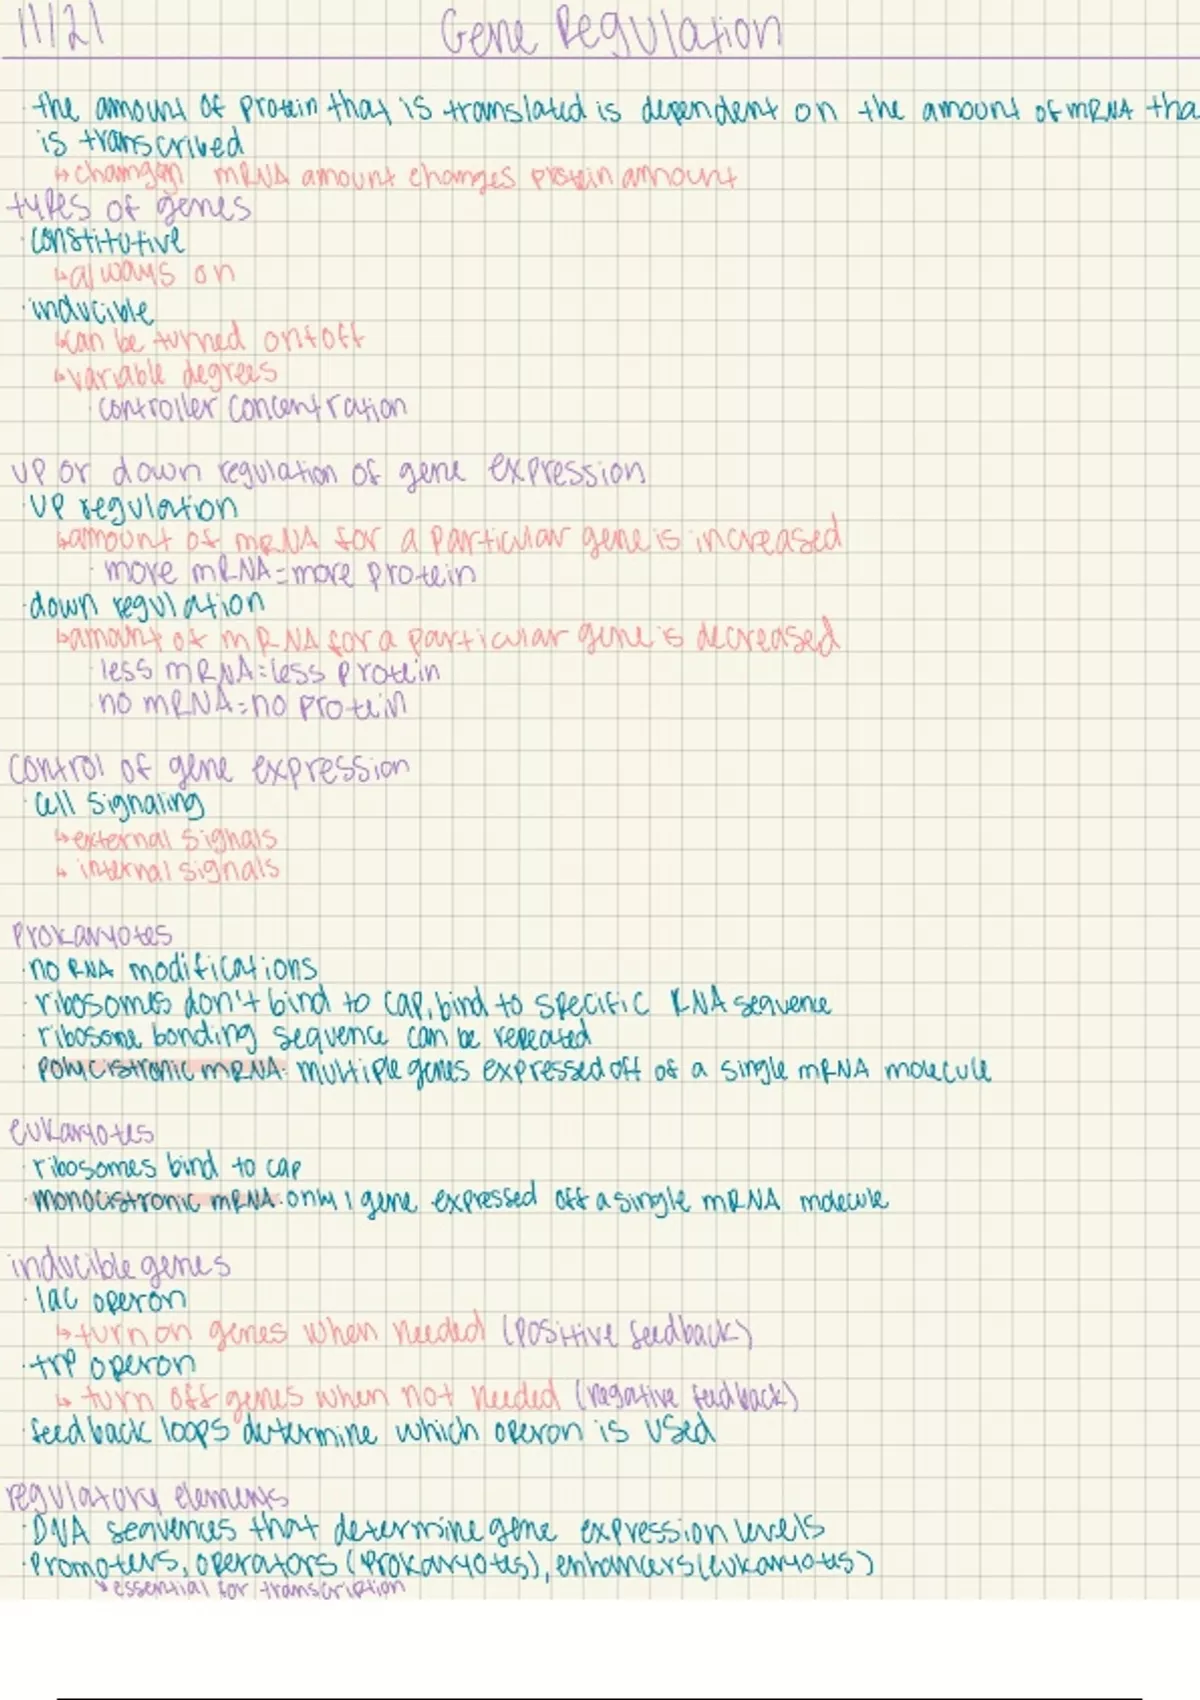 11/21
Gene Regulation
· the amount of protein that is translated is dependent on the amount of mRNA tha
is transcribed
↳ changgn mRNA amount changes protein amount
types of genes
· constitutive
↳ always on
· inducible
↳ can be turned on+off
↳ variable degrees
· controller concentration
up or down regulation of gene expression
· up regulation
↳ amount of mRNA for a particular gene is increased
· more mRNA=more protein
· down regulation
↳ amount of mRNA for a particular gene is decreased
· less mRNA=less protein
· no mRNA=no protein
control of gene expression
· cell signaling
↳ external signals
↳ internal signals
prokaryotes
· no RNA modifications
· ribosomes don't bind to cap, bind to specific RNA sequence
· ribosome bonding sequence can be repeated
· polycistronic mRNA: multiple genes expressed off of a single mRNA molecule
eukaryotes
· ribosomes bind to cap
· monocistronic mRNA: only 1 gene expressed off a single mRNA molecule
inducible genes
· lac operon
↳ turn on genes when needed (positive feedback)
· trp operon
↳ turn off genes when not needed (negative feedback)
· feedback loops determine which operon is used
regulatory elements
· DNA sequences that determine gene expression levels
· promoters, operators (prokaryotes), enhancers (eukaryotes)
↳ essential for transcription